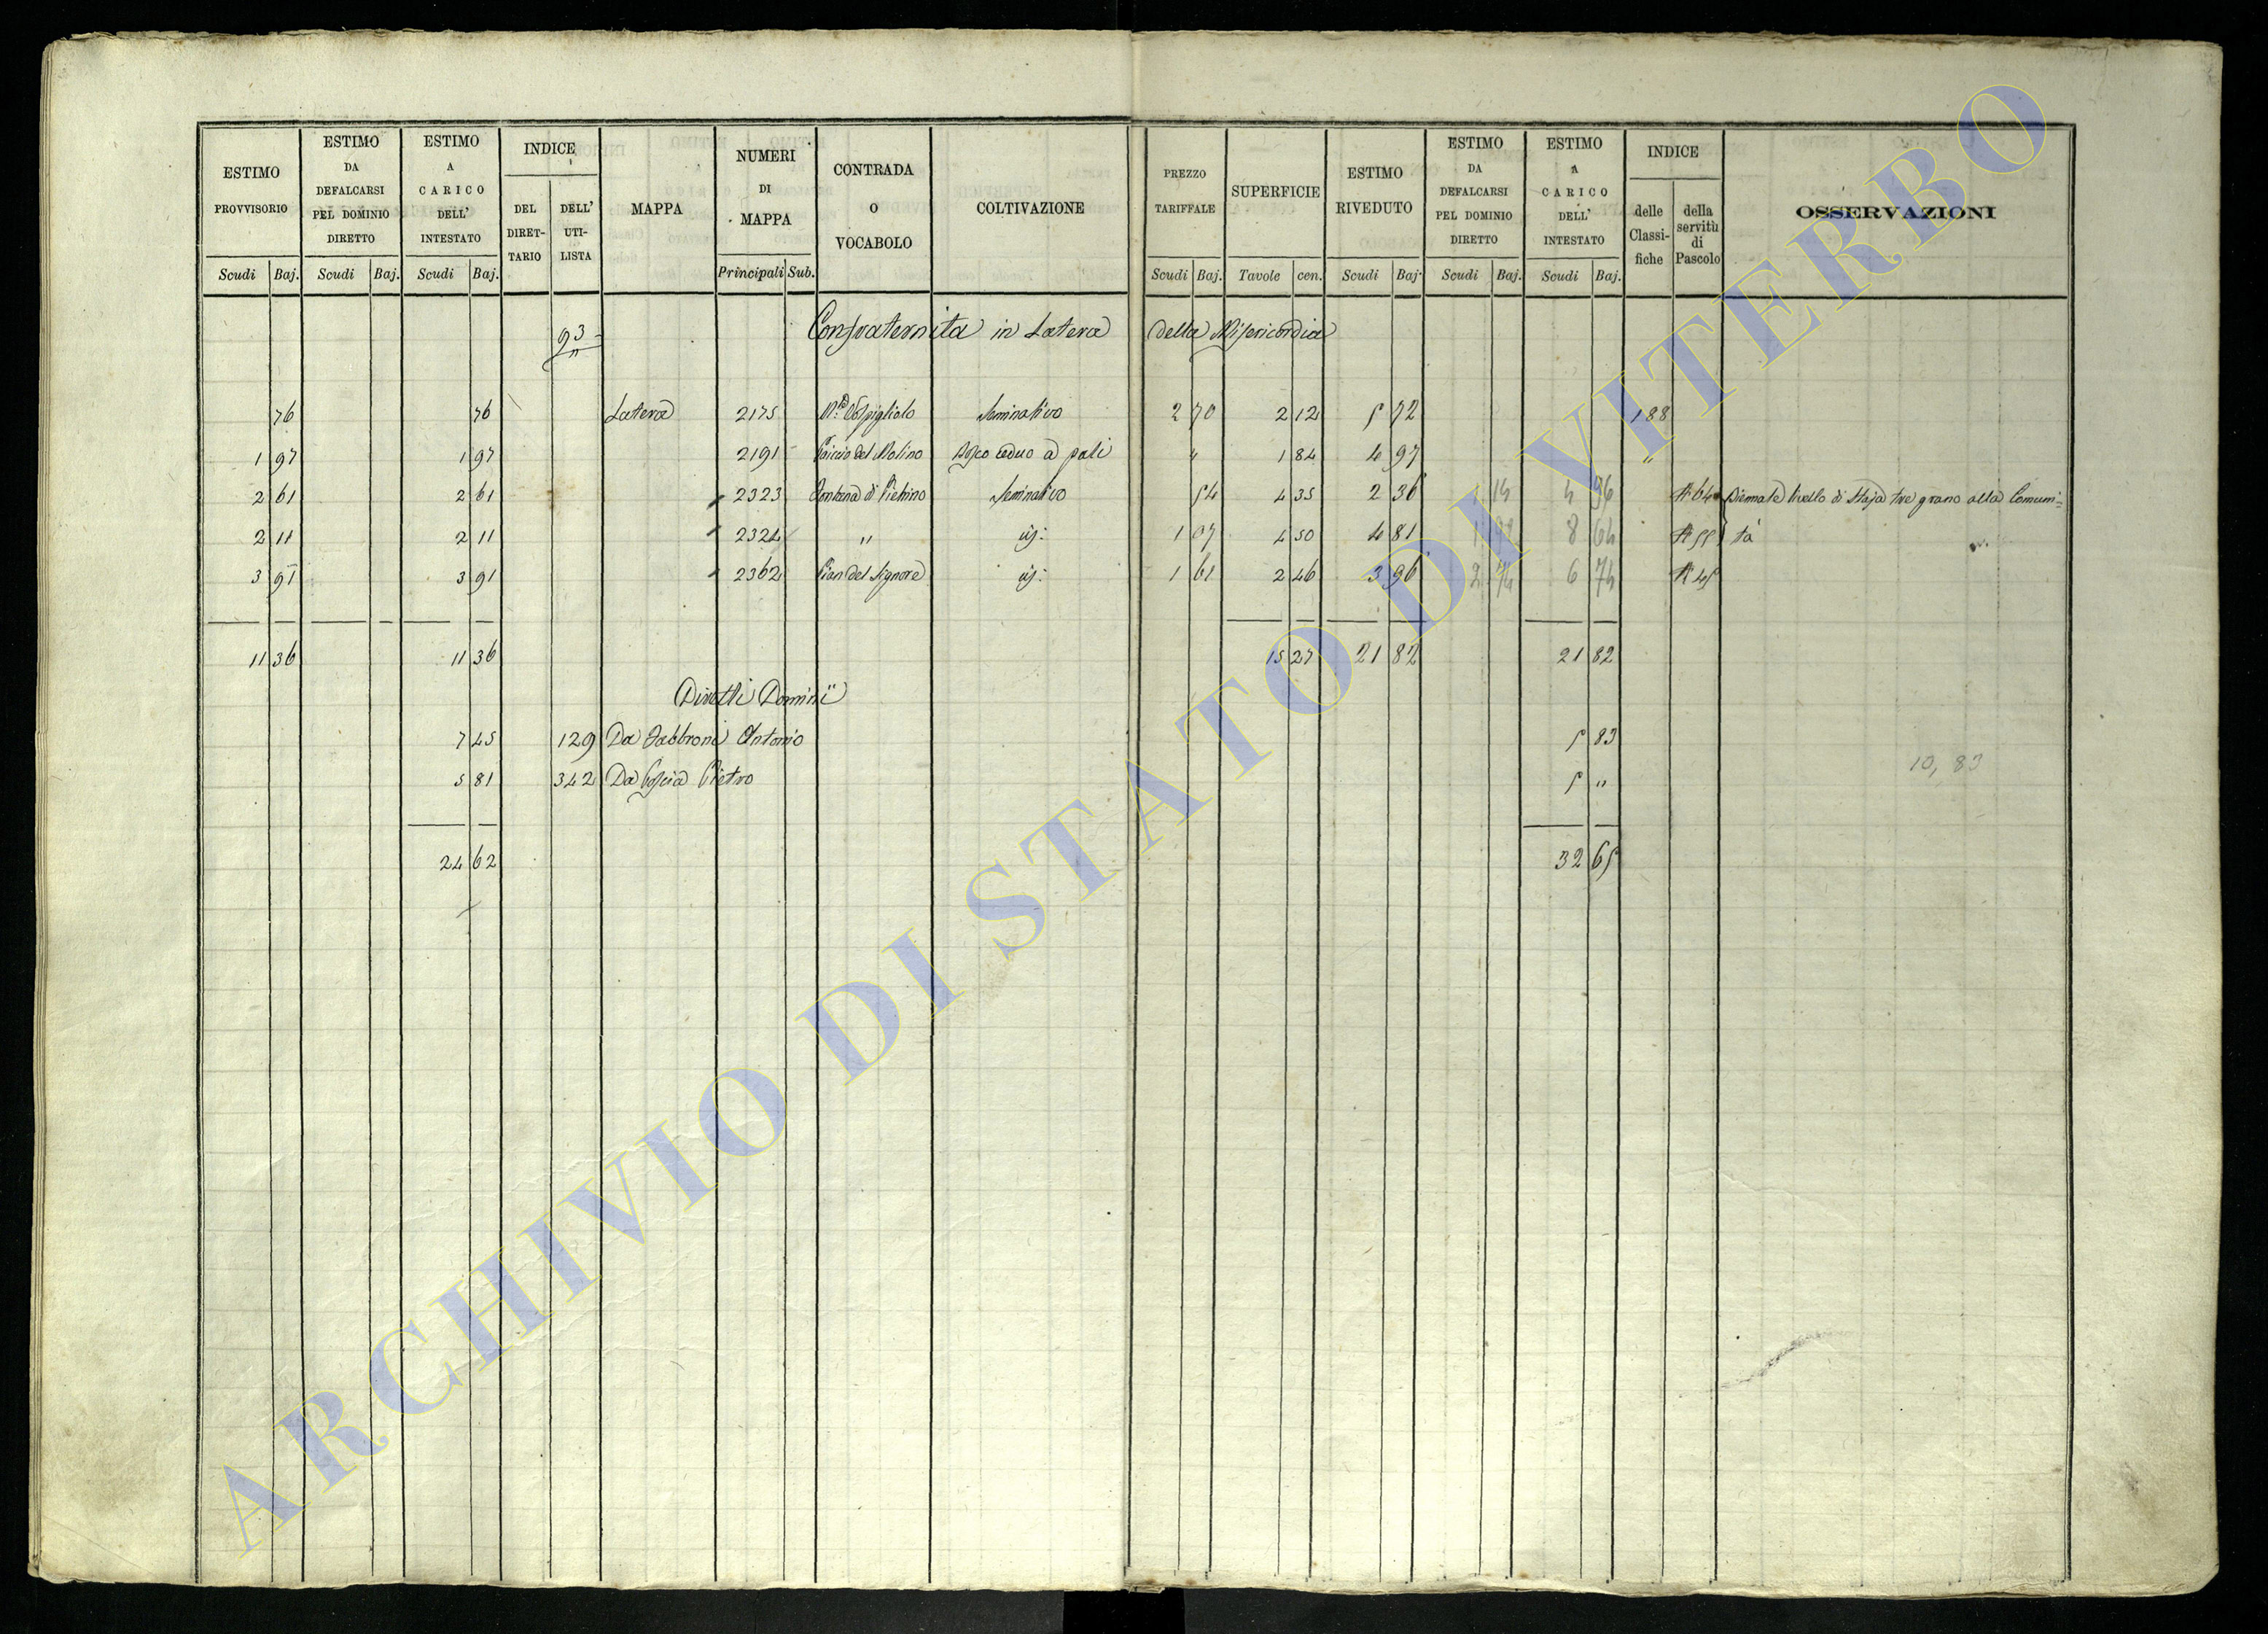 ESTIMO PROVVISORIO | ESTIMO DA DEFALCARSI PEL DOMINIO DIRETTO | ESTIMO A CARICO DELL' INTESTATO | INDICE | MAPPA | NUMERI DI MAPPA | CONTRADA O VOCABOLO | COLTIVAZIONE | PREZZO TARIFFALE | SUPERFICIE | ESTIMO RIVEDUTO | ESTIMO DA DEFALCARSI PEL DOMINIO DIRETTO | ESTIMO A CARICO DELL' INTESTATO | INDICE | OSSERVAZIONI
DEL DIRET-TARIO | DELL' UTI-LISTA | delle Classi-fiche | della servitù di Pascolo
Scudi | Baj. | Scudi | Baj. | Scudi | Baj. | Principali | Sub. | Scudi | Baj. | Tavole | cen. | Scudi | Baj. | Scudi | Baj. | Scudi | Baj.
93 Confraternita in Latera della Misericordia
76 | 76 | Latera | 2175 | Seminativo | 2 70 | 2 12 | 5 72 | 188
1 97 | 1 97 | 2191 | del Molino | Bosco ceduo a pali | " | 1 84 | 4 97 | "
2 61 | 2 61 | 2323 | Fontana di Pietrino | Seminativo | 54 | 4 35 | 2 36 | 14 | 4 36 | A 64 | Biennale livello di Staja tre grano alla Comuni=
2 11 | 2 11 | 2324 | " | id: | 1 07 | 4 50 | 4 81 | 8 64 | A 55 | tà
3 91 | 3 91 | 2362 | Pian del Signore | id: | 1 61 | 2 46 | 3 96 | 2 74 | 6 74 | A 45
11 36 | 11 36 | 15 27 | 21 82 | 21 82
Diretti Dominii
7 45 | 129 | Da Fabbroni Antonio | 5 83
5 81 | 342 | Da Coscia Pietro | 5 "
10, 83
24 62 | 32 65
ARCHIVIO DI STATO DI VITERBO